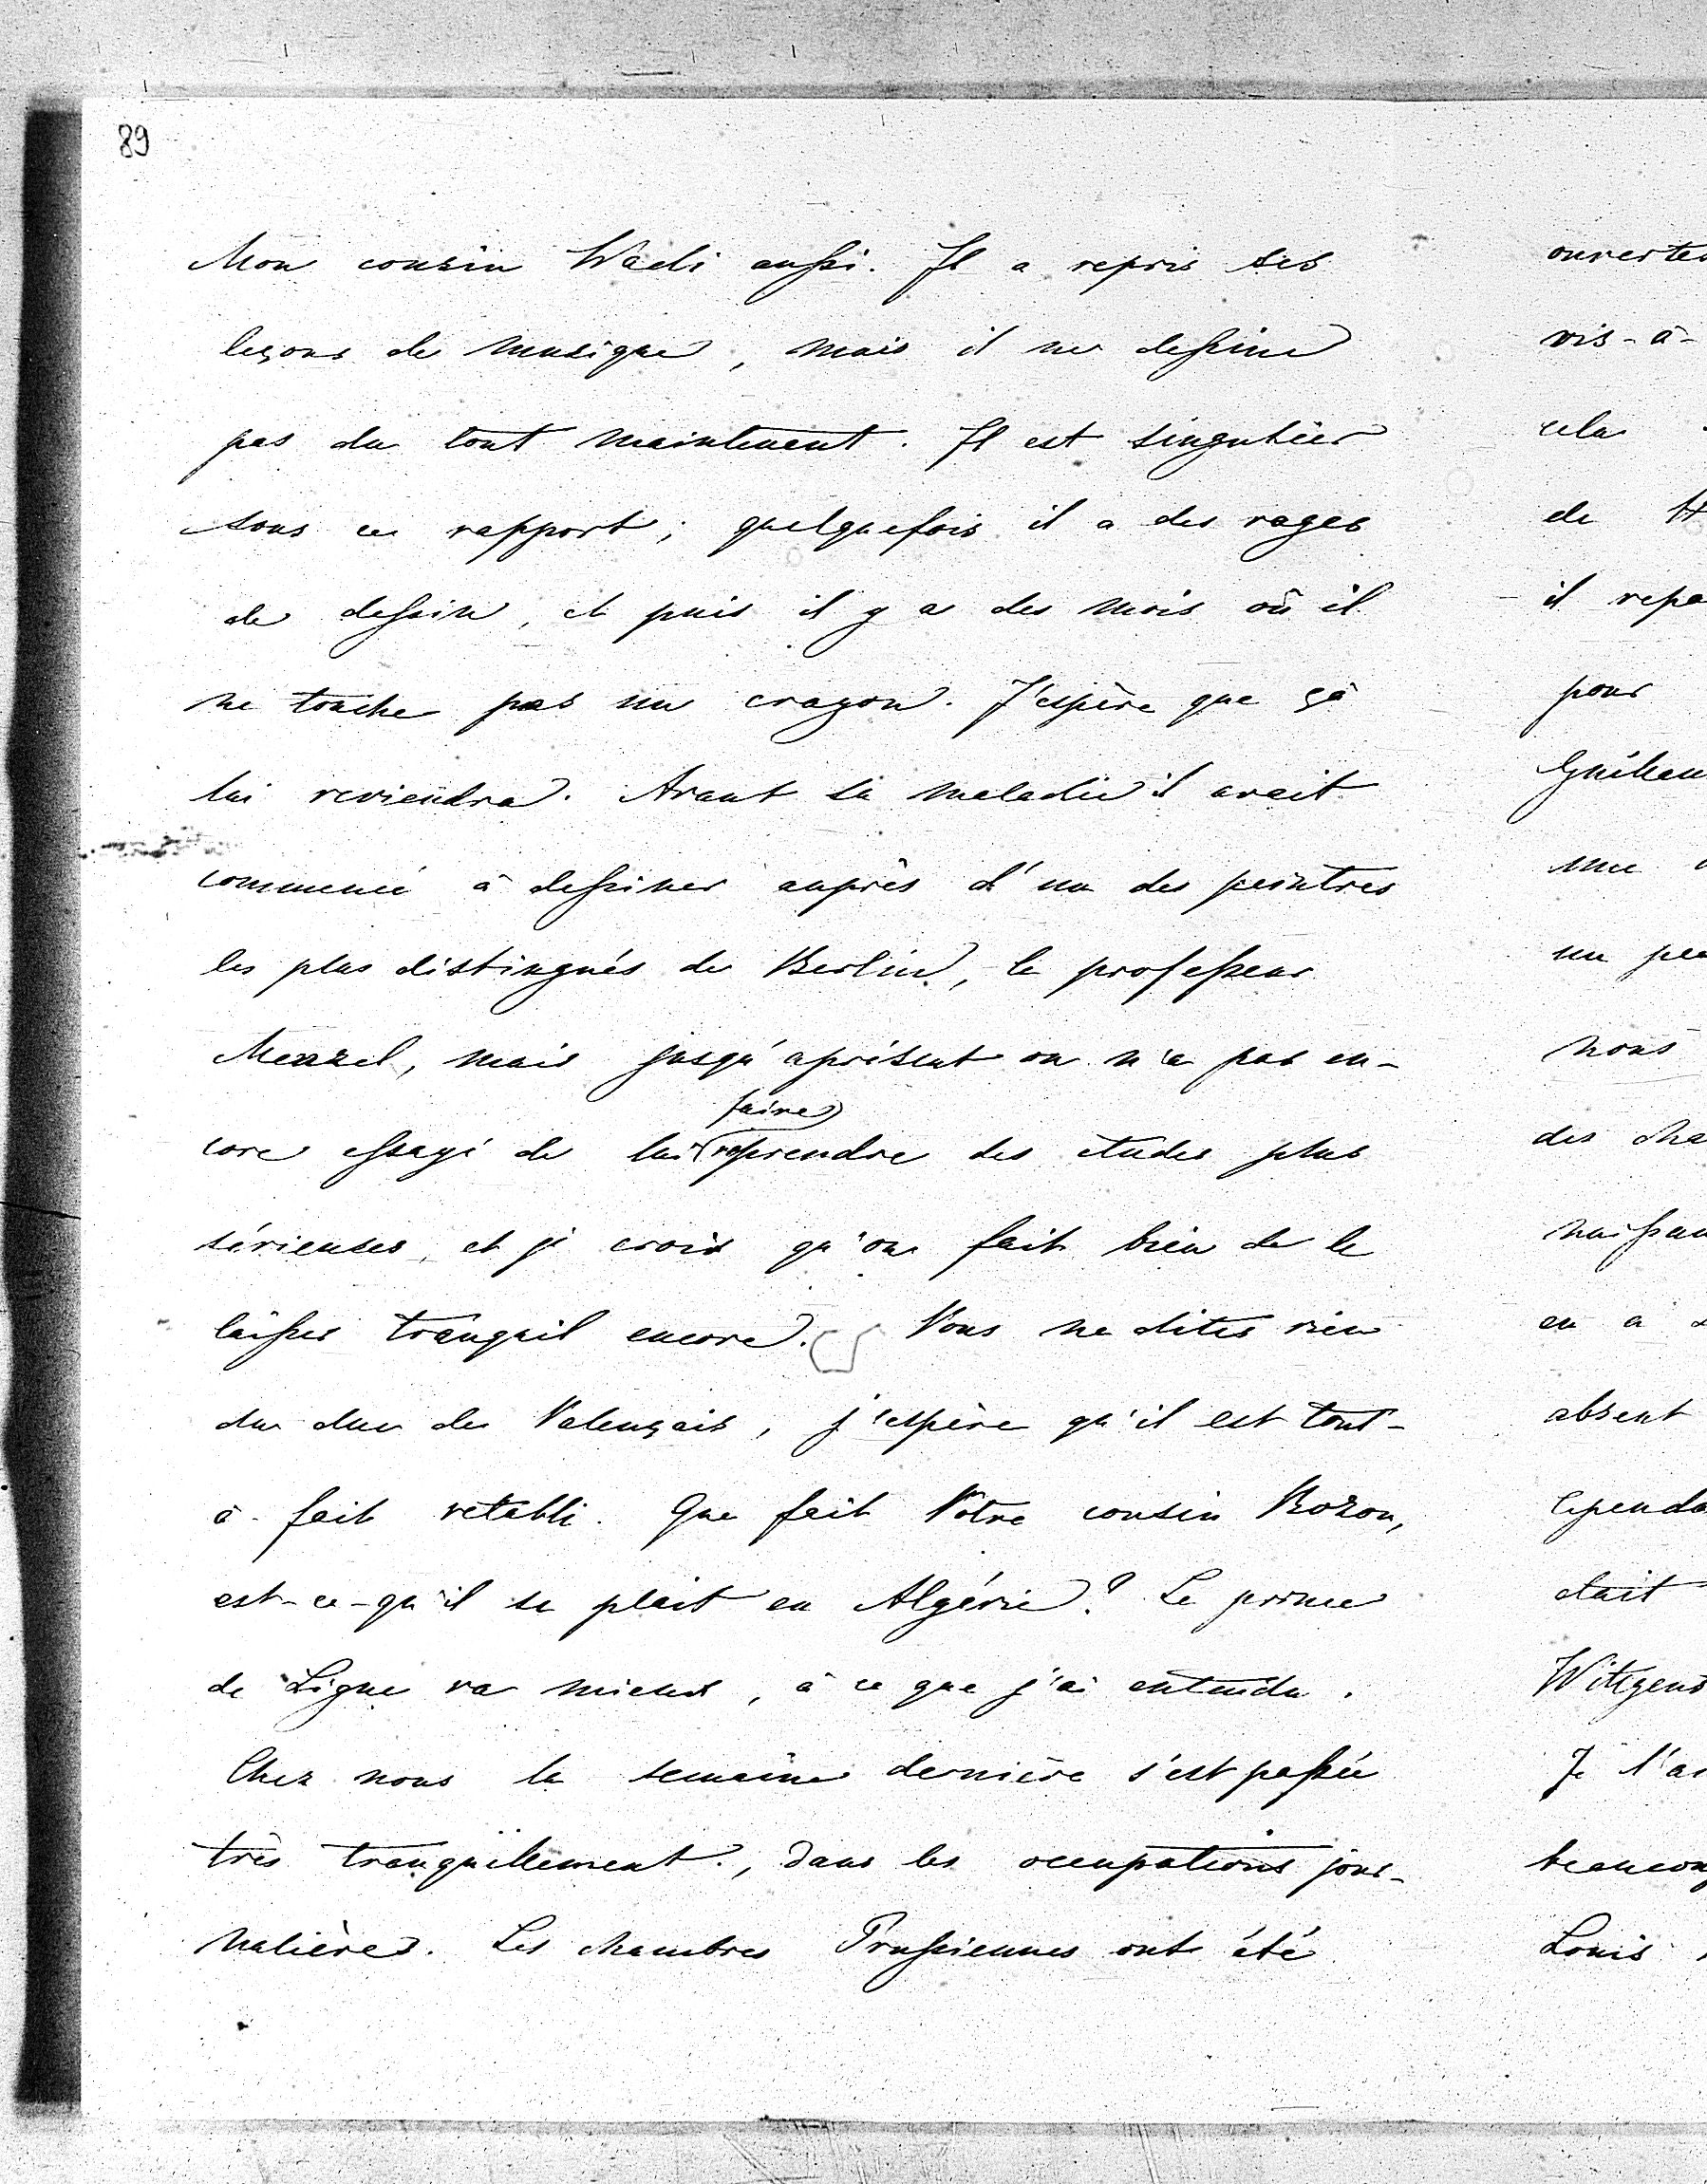 89
Mon cousin Wadi aussi. Il a repris ses
leçons de musique, mais il ne dessine
pas du tout maintenant. Il est singulier
sous ce rapport; quelquefois il a des rages
de dessin, et puis il y a des mois où il
ne touche pas un crayon. J'espère que çà
lui reviendra. Avant sa maladie il avait
commencé à dessiner auprès d'un des peintres
les plus distingués de Berlin, le professeur
Menzel, mais jusqu'aprésent on n'a pas en-
faire
core essayé de lui reprendre des etudes plus
sérieuses, et je crois qu'on fait bien de le
laisser tranquil encore. Vous ne dites rien
du duc de Valençais, j'espère qu'il est tout-
à-fait retabli. Que fait Vôtre cousin Bozon,
est-ce-qu'il se plait en Algérie? Le prince
de Ligne va mieux, à ce que j'ai entendu.
Chez nous la semaine dernière s'est passée
très tranquillement, dans les occupations jour-
nalières. Les chambres Prussiennes ont été
ouvertes
vis-à-
cela
de
il repa
pour
une
un peu
nous
des cha
naissan
en a
absent
cependa
était
Wittgens
Je l'ai
beaucoup
Louis